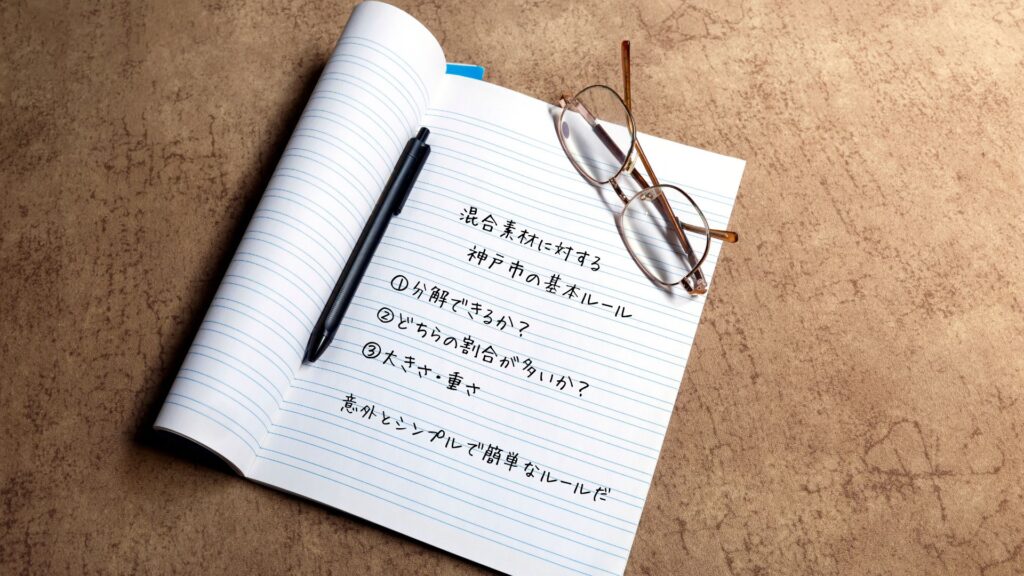 混合素材に対する
神戸市の基本ルール
①分解できるか？
②どちらの割合が多いか？
③大きさ・重さ
意外とシンプルで簡単なルールだ